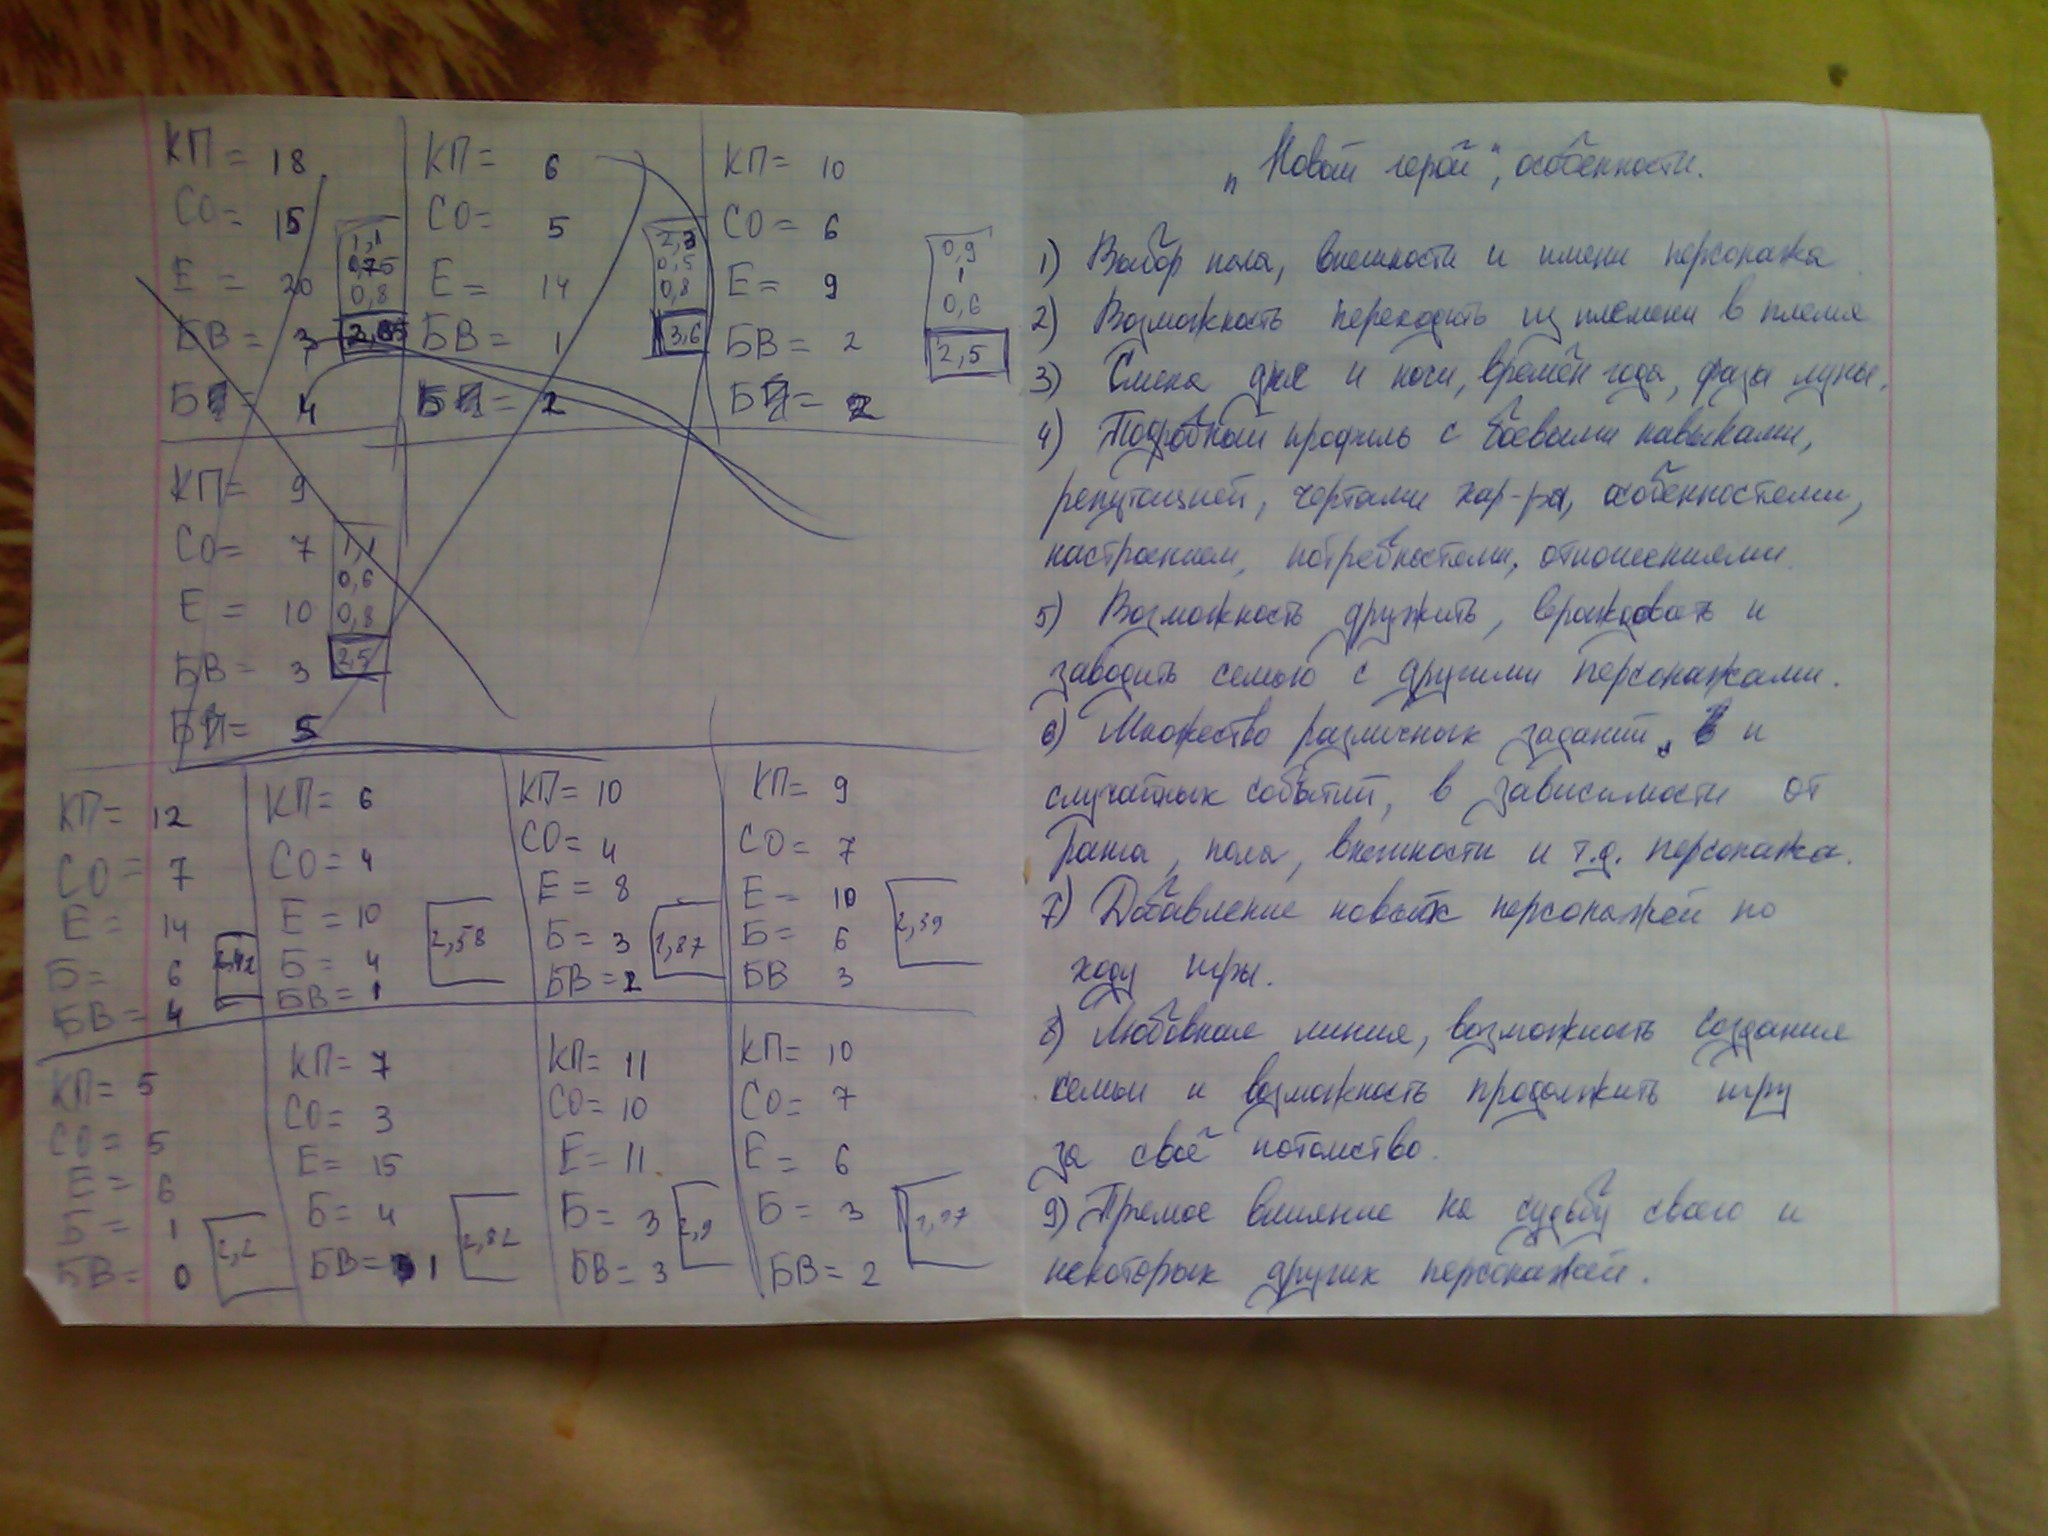 КП= 18
СО= 15
Е = 20
БВ= 3
4
1,1
0,75
0,8
КП= 6
СО= 5
Е= 14
БВ= 1
= 2
2,3
0,5
0,8
3,6
КП= 10
СО= 6
Е= 9
БВ= 2
= 2
0,9
1
0,6
2,5
КП= 9
СО= 7
Е = 10
БВ= 3
= 5
1,1
0,6
0,8
2,5
КП= 12
СО= 7
Е= 14
Б= 6
БВ= 4
КП= 6
СО= 4
Е= 10
Б= 4
БВ= 1
2,58
КП= 10
СО= 4
Е= 8
Б= 3
БВ= 2
1,87
КП= 9
СО= 7
Е= 10
Б= 6
БВ 3
2,39
КП= 5
СО= 5
Е= 6
Б= 1
БВ= 0
2,2
КП= 7
СО= 3
Е= 15
Б= 4
БВ= 1
2,82
КП= 11
СО= 10
Е= 11
Б= 3
БВ= 3
КП= 10
СО= 7
Е= 6
Б= 3
БВ= 2
„Новый герой“, особенности.
1) Выбор пола, внешности и имени персонажа
2) Возможность переходить из племени в племя
3) Смена дня и ночи, времён года, фазы луны.
4) Подробный профиль с боевыми навыками,
репутацией, чертами хар-ра, особенностями,
настроением, потребностями, отношениями.
5) Возможность дружить, враждовать и
заводить семью с другими персонажами.
6) Множество различных заданий и
случайных событий, в зависимости от
ранга, пола, внешности и т.д. персонажа.
7) Добавление новых персонажей по
ходу игры.
8) Любовная линия, возможность создания
семьи и возможность продолжить игру
за своё потомство.
9) Прямое влияние на судьбу своего и
некоторых других персонажей.